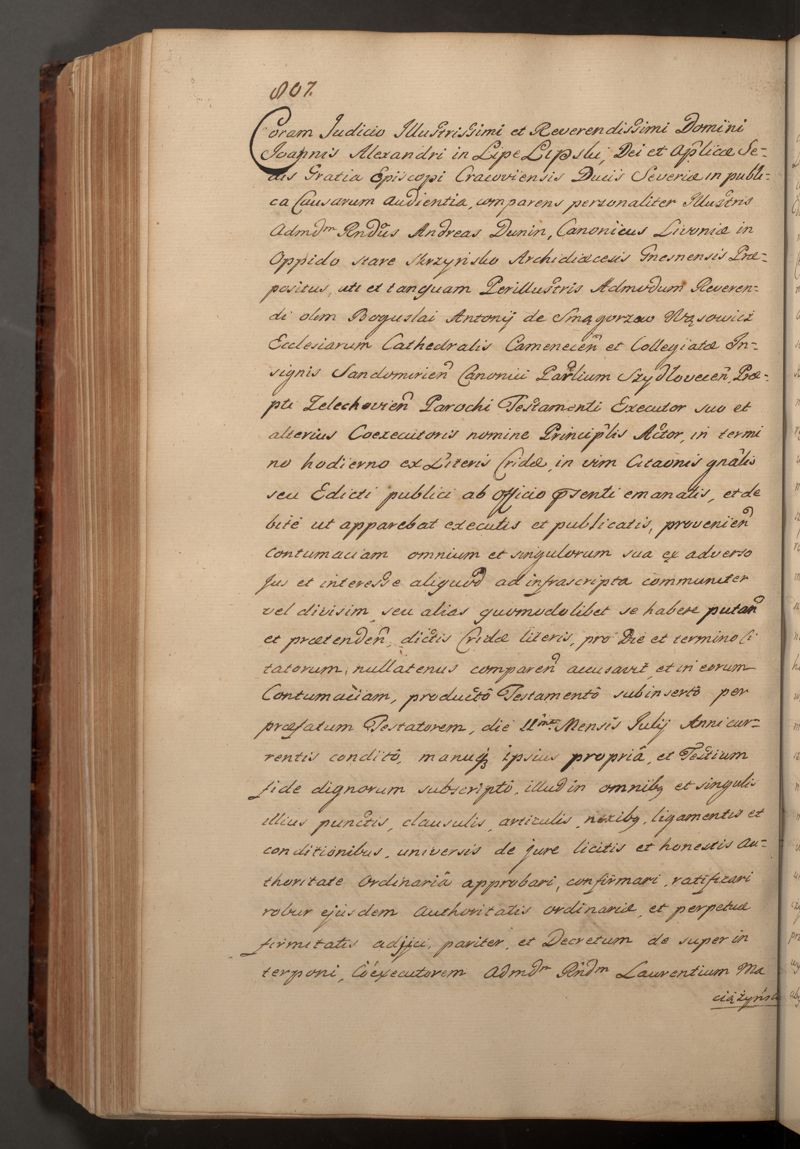 807.
Coram Judicio Illustrissimi et Reverendissimi Domini
Joannis Alexandri in Lipe Lipski, Dei et Aplicæ Se-
dis Gratia Episcopi Cracoviensis Ducis Severiæ in publi-
ca Causarum audientia, comparens personaliter Illustris
Admdm Rndus Andreas Dunin, Canonicus Livoniæ in
Oppido stare Skrzyńsko Archidiæcesis Gnesnensis Præ-
positus, uti et tanquam Perillustris Admodum Reveren-
di olim Boguslai Antonij de Smągorzew Wąsowicz
Ecclesiarum Cathedralis Camenecien et Collegiatæ In-
signis Sandomirien Canonici Parlium Szydlovecen, Præ-
pti Zelechovien Parochi Testamenti Executor suo et
alterius Coexecutoris nomine Principlis Actor, in termi
no hodierno ex Literis Cridæ, in vim Citaonis gnalis
seu Edicti publici ab officio psenti emanatis, et de
bite ut apparebat executis et publicatis, provenien
contumaciam omnium et singulorum sua ex adverso
Jus et interesse aliquod ad infrascripta communiter
vel divisim, seu alias quomodolibet se habere putan
et prætenden, dictis Cridæ literis, pro Die et termino Ci
tatorum, nullatenus comparen accusavit, et in eorum
Contumaciam, producto Testamento subinserto per
præfatum Testatorem, die 11ma Mensis Julij Anni cur-
rentis condito, manuq3 ipsius propria, et Testium
fide dignorum subscripto, illud in omnib3 et singulis
illius punctis, clausulis, articulis, nexib3, ligamentis et
conditionibus, universis de jure licitis et honestis Au-
thoritate Ordinariâ approbari, confirmari, ratificari
robur ejusdem Authoritatis ordinariæ, et perpetuæ
firmitatis adjici, pariter, et Decretum de super in
terponi, Coexecutorem Admdm Rndm Laurentium Ma